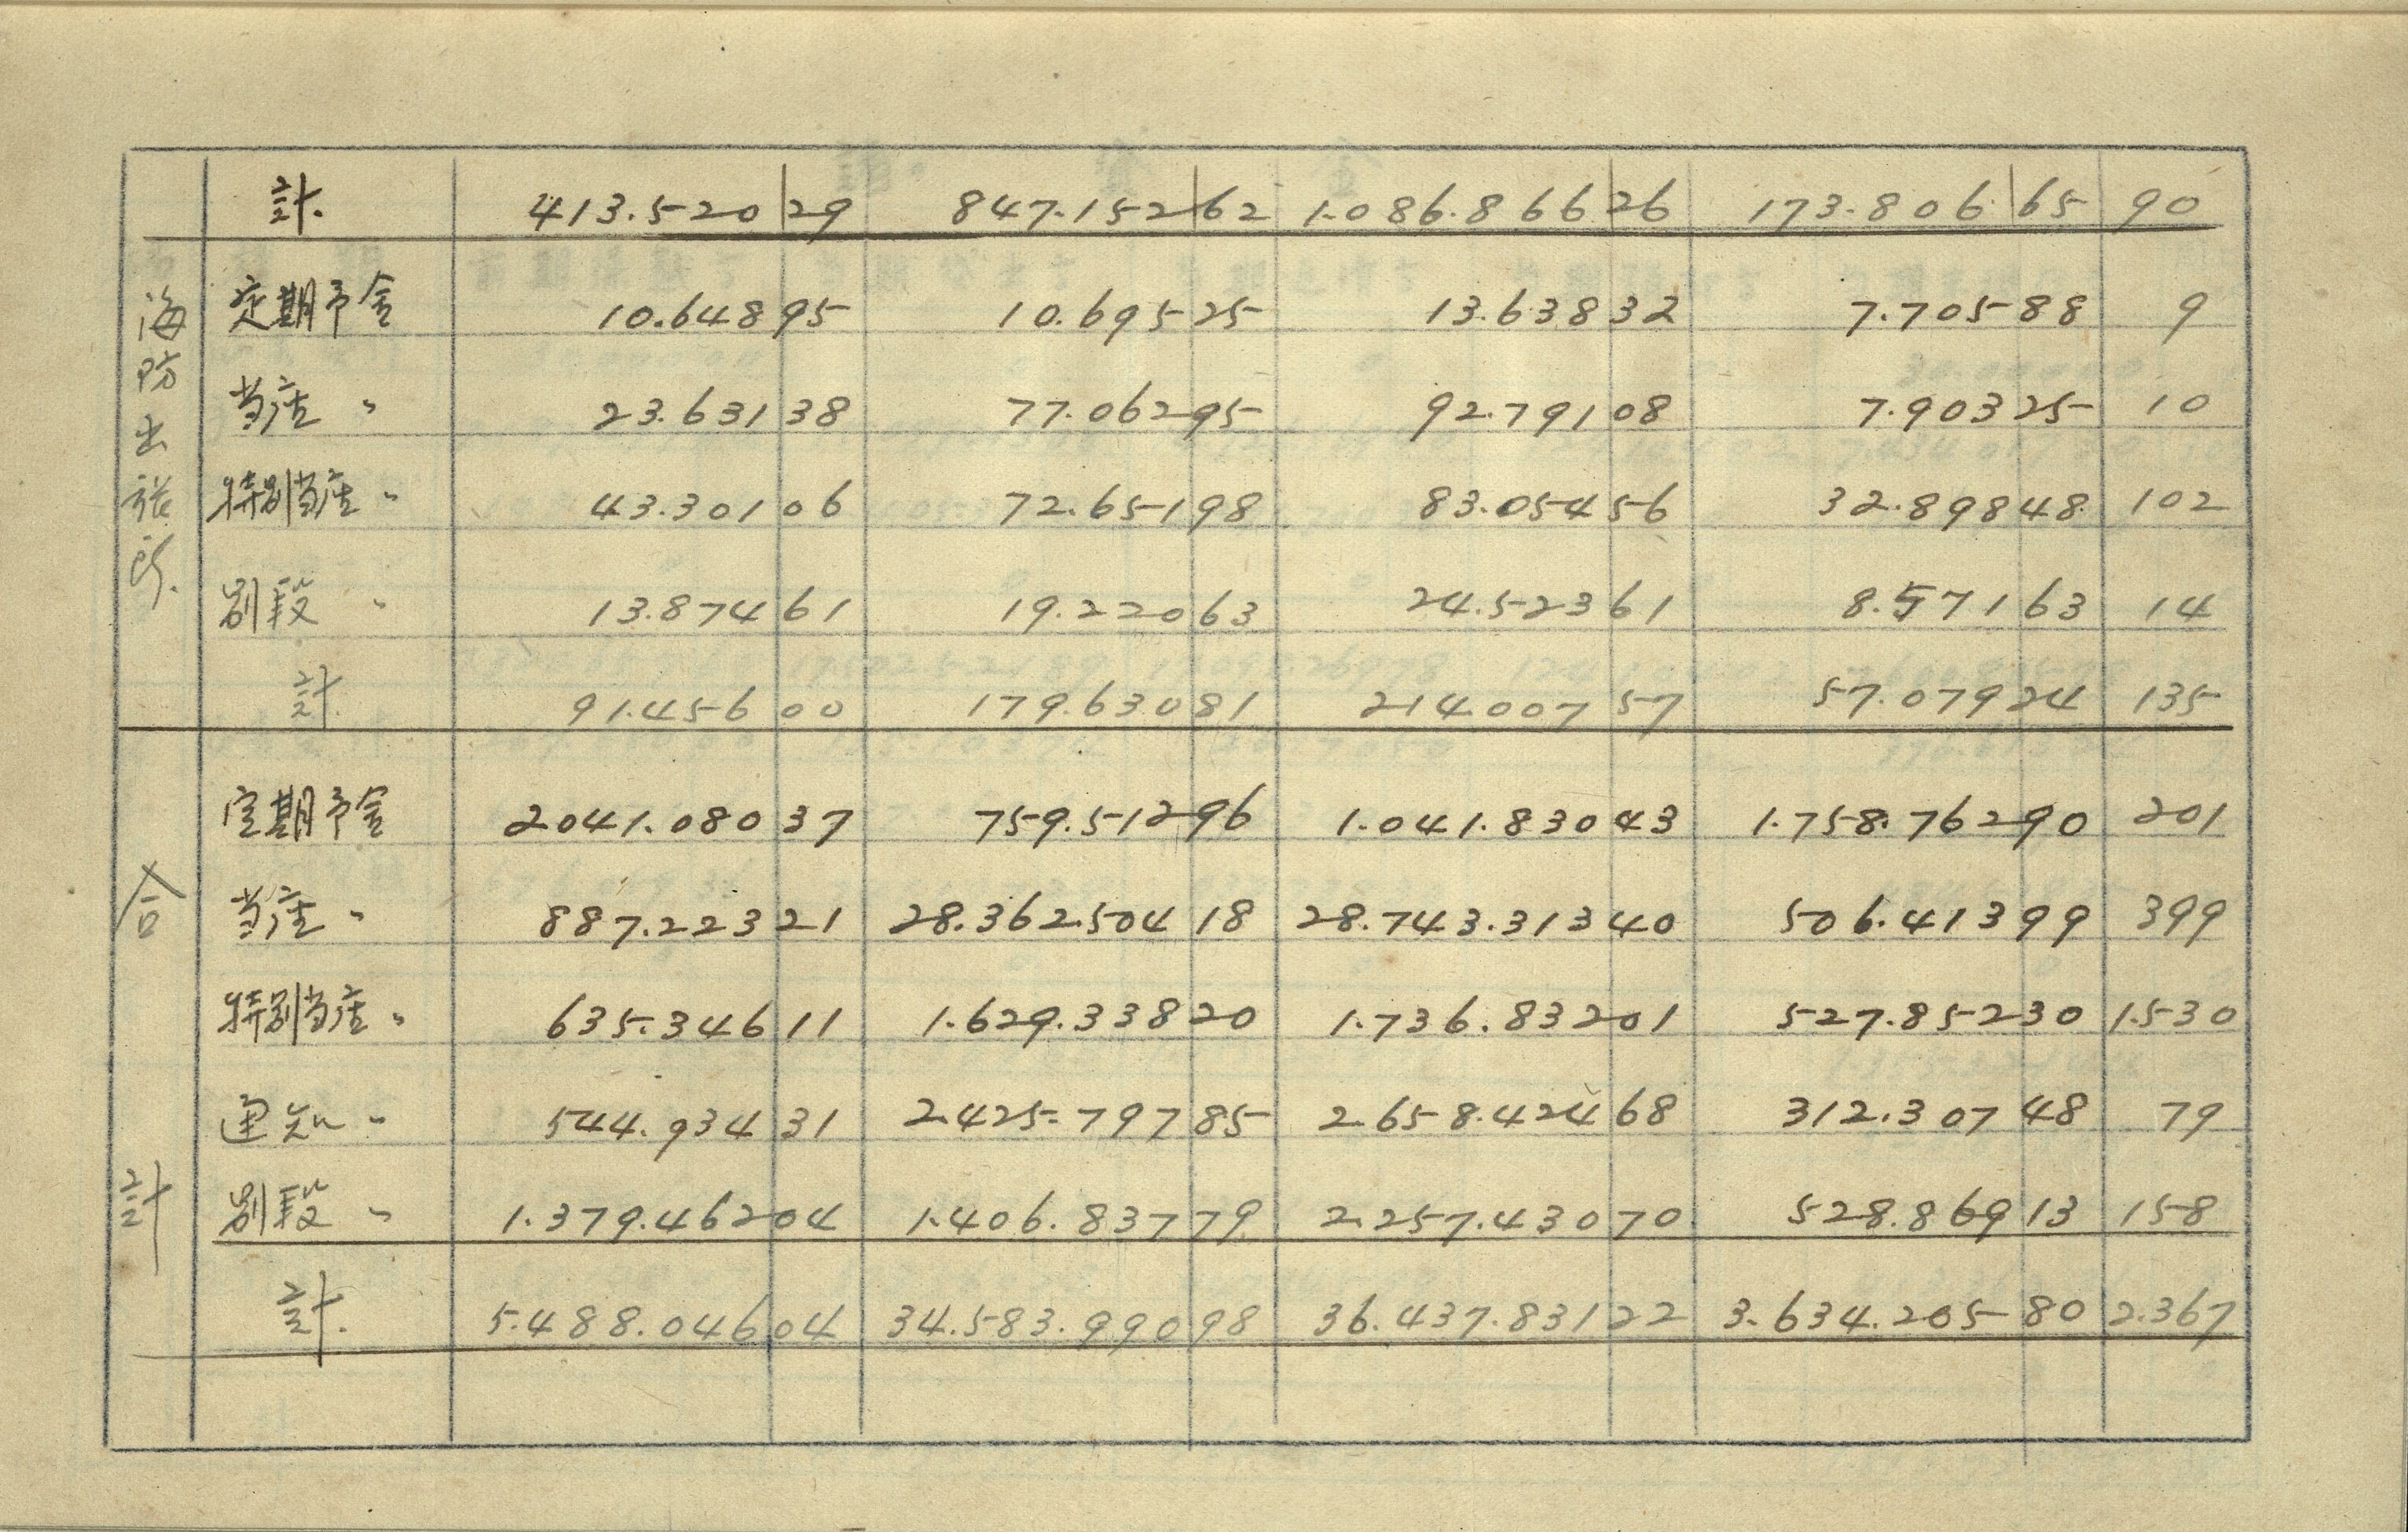 計. 413.520 29 847.152 62 1.086.866 26 173.806 65 90
海防出張所.
定期予金 10.648 95 10.695 25 13.638 32 7.705 88 9
当座 〃 23.631 38 77.062 95 92.791 08 7.903 25 10
特別当座 〃 43.301 06 72.651 98 83.054 56 32.898 48 102
別段 〃 13.874 61 19.220 63 24.523 61 8.571 63 14
計 91.456 00 179.630 81 214.007 57 57.079 24 135
合計
定期予金 2041.080 37 759.512 96 1.041.830 43 1.758.762 90 201
当座 〃 887.223 21 28.362.504 18 28.743.313 40 506.413 99 399
特別当座 〃 635.346 11 1.629.338 20 1.736.832 01 527.852 30 1.530
通知 〃 544.934 31 2.425.797 85 2.658.424 68 312.307 48 79
別段 〃 1.379.462 04 1.406.837 79 2.257.430 70 528.869 13 158
計. 5.488.046 04 34.583.990 98 36.437.831 22 3.634.205 80 2.367